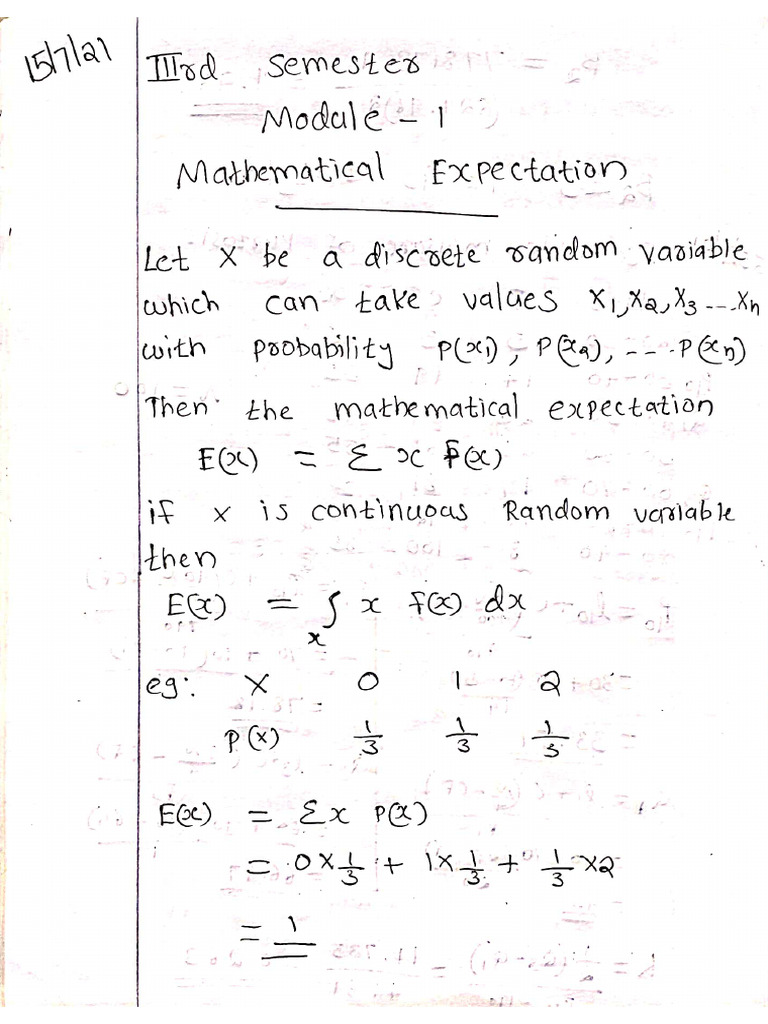 15/7/21
IIIrd Semester
Module - 1
Mathematical Expectation
Let X be a discrete random variable
which can take values X₁, X₂, X₃ ---- Xn
with probability P(x₁), P(x₂), --- P(xn)
Then the mathematical expectation
E(x) = Σ x P(x)
if x is continuous Random variable
then
E(x) = ∫ x f(x) dx
x
eg: X 0 1 2
P(x) 1/3 1/3 1/3
E(x) = Σx P(x)
= 0 × 1/3 + 1 × 1/3 + 1/3 × 2
= 1